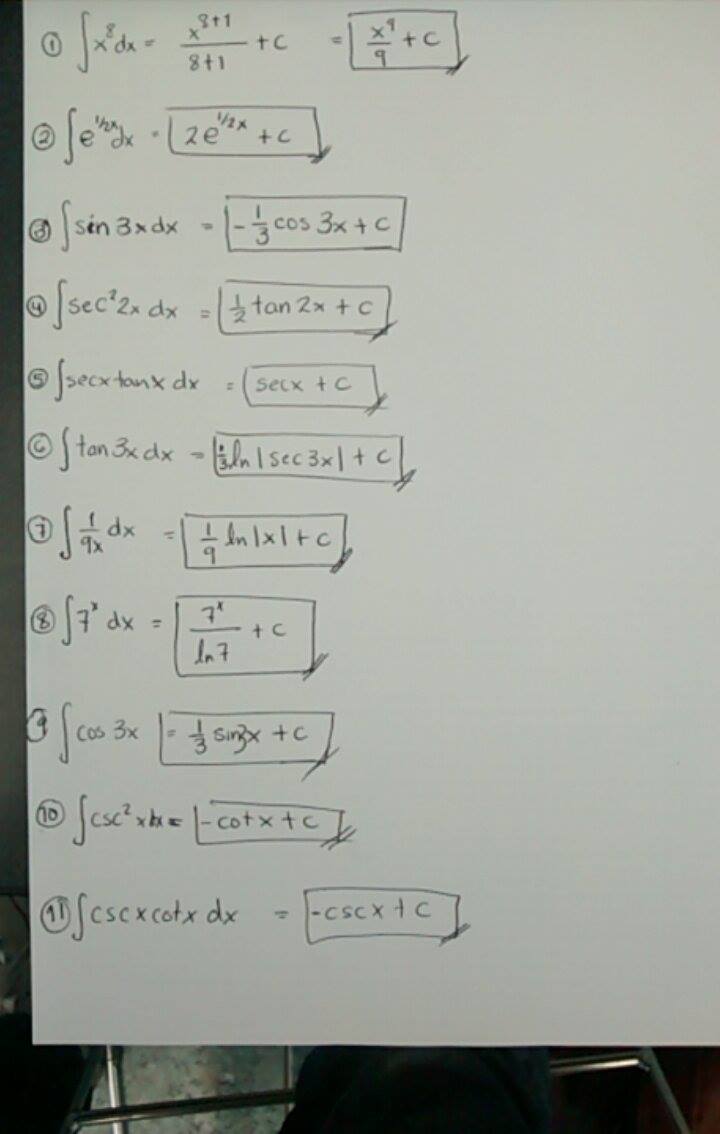 ① ∫x⁸dx = x⁸⁺¹/8+1 + c = x⁹/9 + c
② ∫e^1/2x dx = 2e^1/2x + c
③ ∫sin 3x dx = -1/3 cos 3x + c
④ ∫sec²2x dx = 1/2 tan 2x + c
⑤ ∫secx tanx dx = secx + c
⑥ ∫tan 3x dx = 1/3 ln |sec 3x| + c
⑦ ∫1/9x dx = 1/9 ln |x| + c
⑧ ∫7ˣ dx = 7ˣ/ln 7 + c
⑨ ∫cos 3x = 1/3 sin3x + c
⑩ ∫csc² x dx = -cotx + c
⑪ ∫cscxcotx dx = -cscx + c